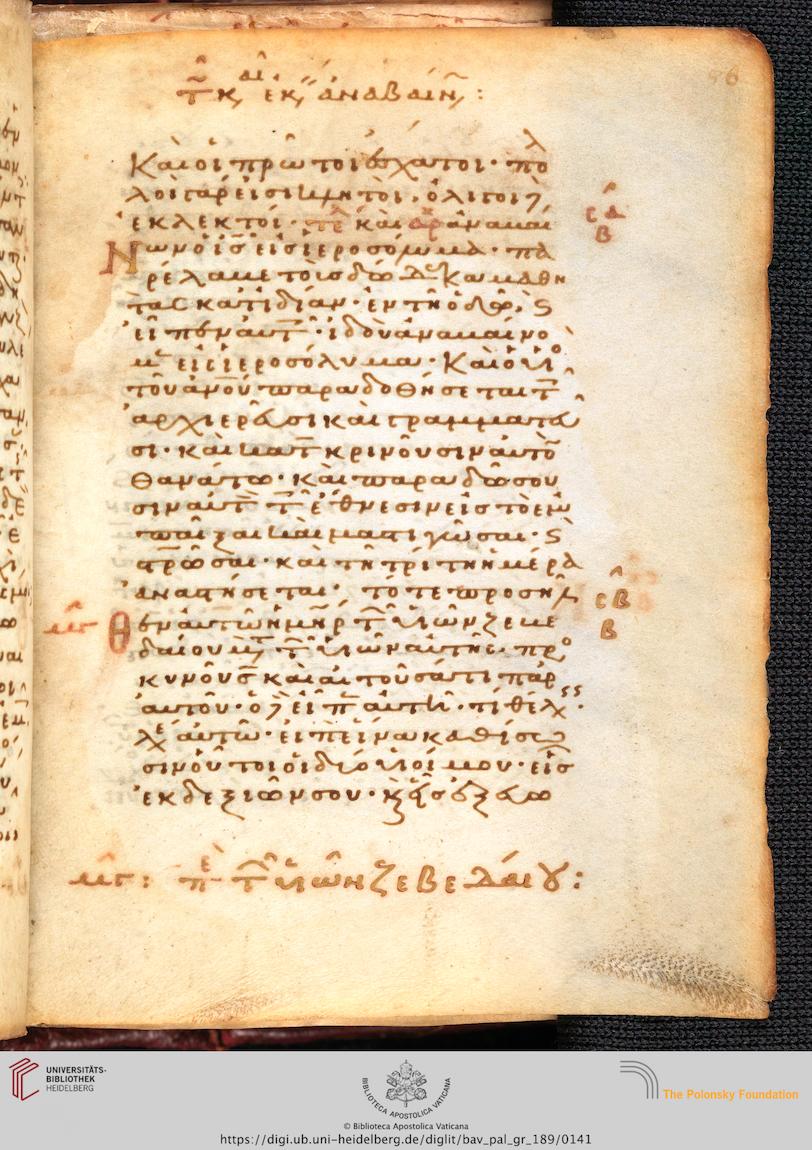 56
Καὶ οἱ πρῶτοι ἔσχατοι· πολ
λοὶ γάρ εἰσι κλητοὶ, ὀλίγοι δὲ
ἐκλεκτοί· τε καὶ αρ ἀναβαί
Νων ὁ ις εἰς ἱεροσόλυμα· πα
ρέλαβε τοὺς δώδεκα μαθη
τὰς κατιδίαν· ἐν τῇ ὁδῷ, καὶ
εἶπεν αὐτοῖς· ἰδοὺ ἀναβαίνο
μεν εἰς ἱεροσόλυμα· Καὶ ὁ υἱὸς
τοῦ ανου παραδοθήσεται τοῖς
ἀρχιερεῦσι καὶ γραμματεῦ
σι· καὶ κατακρινοῦσιν αὐτὸν
θανάτω· καὶ παραδώσου
σιν αὐτὸν τοῖς ἔθνεσιν εἰς τὸ ἐμ
παῖξαι καὶ μαστιγῶσαι· καὶ
στρῶσαι· καὶ τῇ τρίτη ἡμέρα
ἀναστήσεται· τότε προσῆλ
Θεν αὐτῶ ἡ μηρ τῶν υἱῶν ζεβε
δαίου μετὰ τῶν υἱῶν αὐτῆς· προσ
κυνοῦσα καὶ αἰτοῦσά τι παρ
αὐτοῦ· ὁ δὲ εἶπεν αὐτῆ· τί θέλεις·
λέγει αὐτῶ· εἰπὲ ἵνα καθίσω
σιν οὗτοι οἱ δύο υἱοί μου· εἷς
ἐκ δεξιῶν σου· καὶ εἷς ἐξ εὐω
μγ: π τῶν υἱῶν Ζεβεδαίου:
UNIVERSITÄTS-
BIBLIOTHEK
HEIDELBERG
BIBLIOTECA APOSTOLICA VATICANA
The Polonsky Foundation
© Biblioteca Apostolica Vaticana
https://digi.ub.uni-heidelberg.de/diglit/bav_pal_gr_189/0141